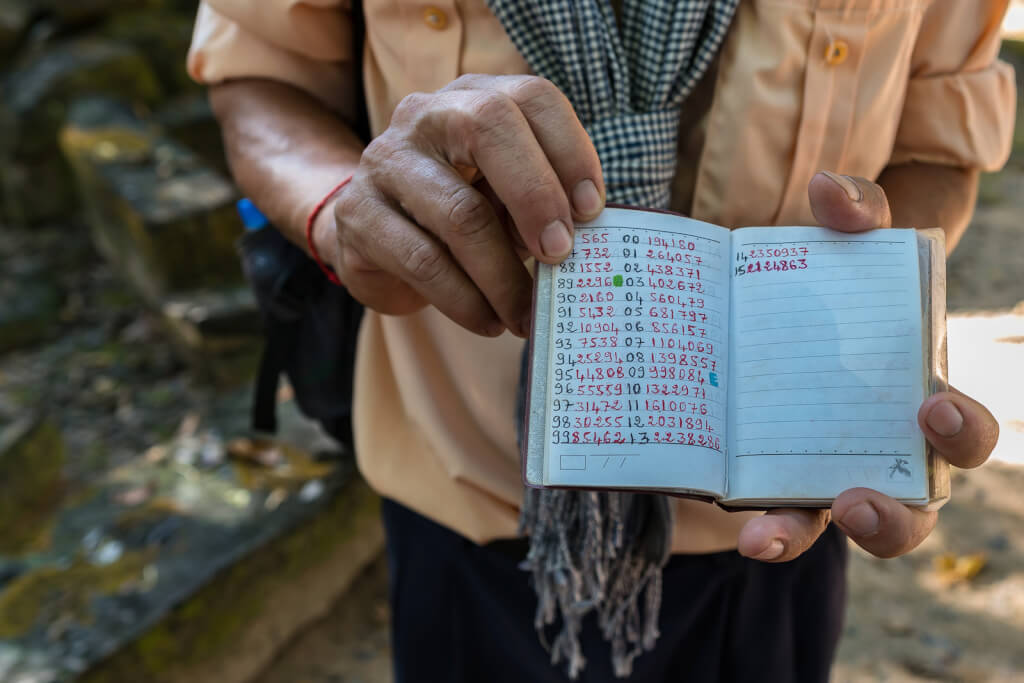 565 00 194180
732 01 264057
88 1552 02 438371
89 2296 03 402672
90 2160 04 560479
91 5432 05 681797
92 10904 06 856157
93 7538 07 1104069
94 25294 08 1398557
95 44808 09 998084
96 55559 10 1322971
97 31472 11 1610076
98 30255 12 2031894
99 85462 13 2238286
/ /
14 2350937
15 2124863